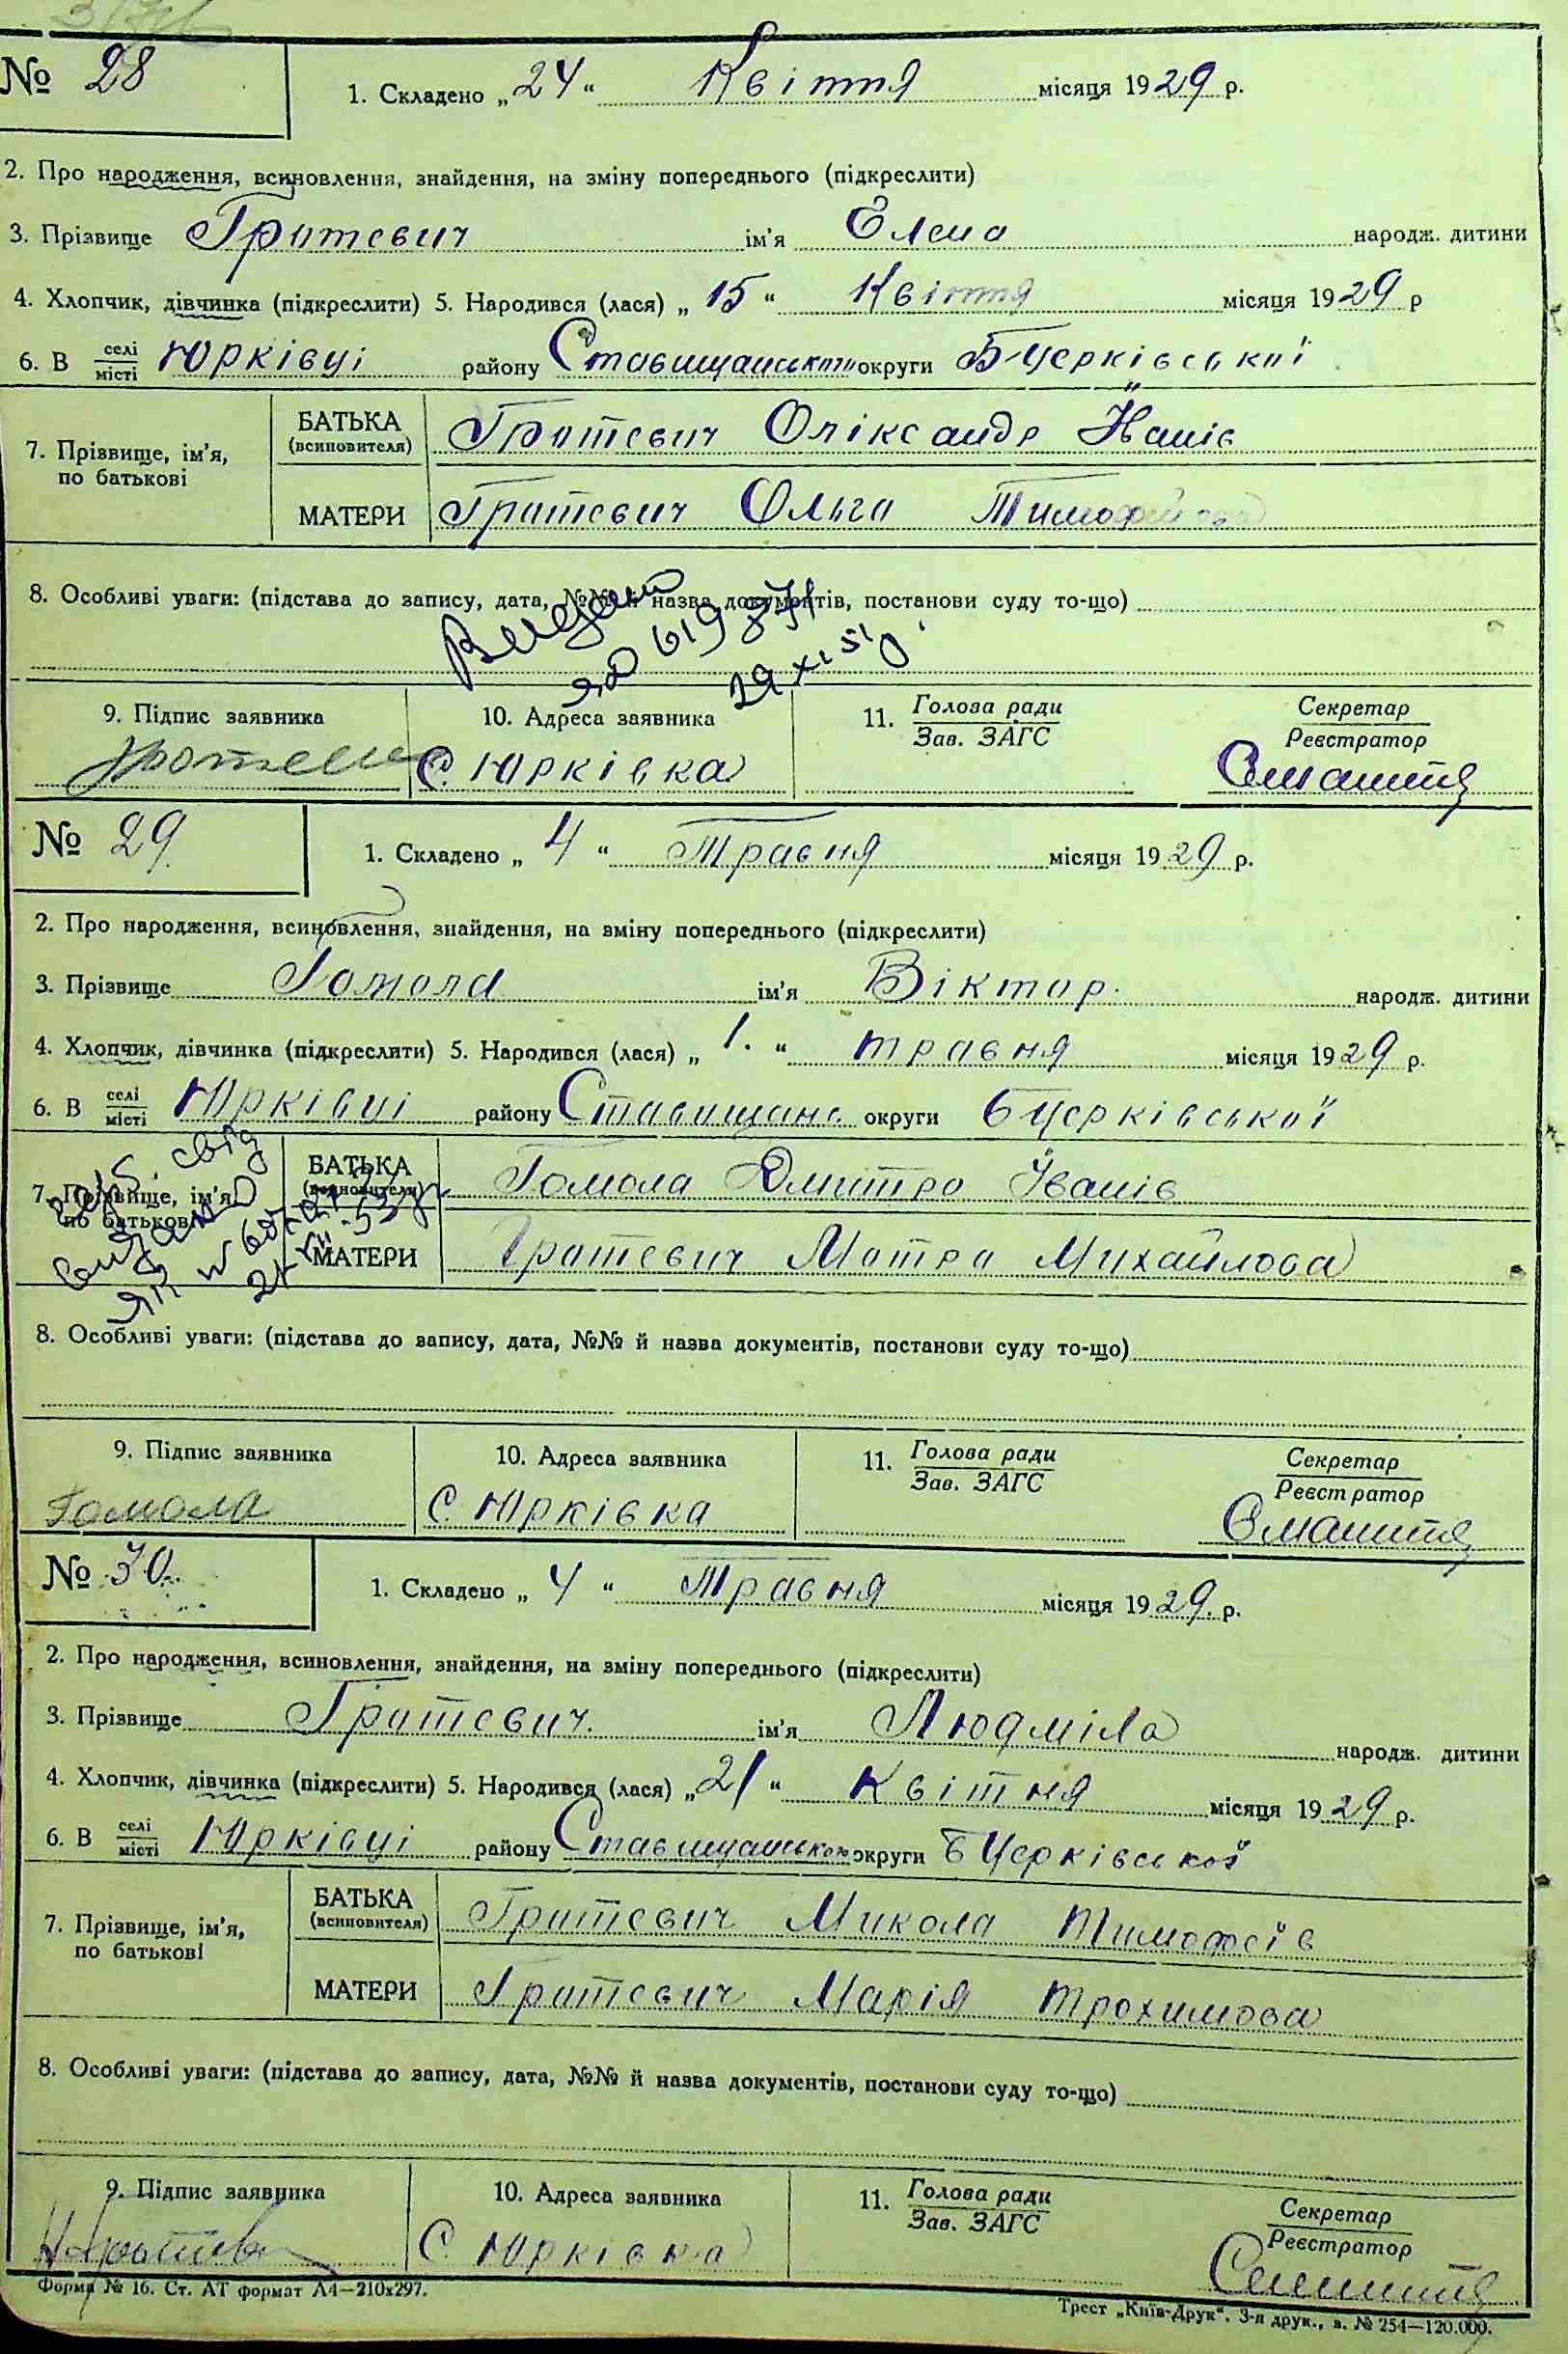 № 28
1. Складено „24“ Квіття місяця 1929 р.
2. Про народження, всиновлення, знайдення, на зміну попереднього (підкреслити)
3. Прізвище Гратевич ім'я Елена народж. дитини
4. Хлопчик, дівчинка (підкреслити) 5. Народився (лася) „15“ Квіття місяця 1929 р
6. В селі місті Юрківці району Ставищанського округи БЦерківської
7. Прізвище, ім'я, по батькові
БАТЬКА (всиновителя) Гратевич Оліксандр Йанів
МАТЕРИ Гратевич Ольга
8. Особливі уваги: (підстава до запису, дата, №№ й назва документів, постанови суду то-що)
619371
29 XI 51
9. Підпис заявника 10. Адреса заявника 11. Голова ради Зав. ЗАГС Секретар Реєстратор
С. Юрківка
№ 29
1. Складено „4“ Травня місяця 1929 р.
2. Про народження, всиновлення, знайдення, на зміну попереднього (підкреслити)
3. Прізвище Гомола ім'я Віктор. народж. дитини
4. Хлопчик, дівчинка (підкреслити) 5. Народився (лася) „1.“ травня місяця 1929 р.
6. В селі місті Юрківці району Ставищанс округи БЦерківської
7. Прізвище, ім'я по батькові
БАТЬКА (всиновителя) Гомола Дмитро Іванів
МАТЕРИ Гратевич Мотра Михайлова
8. Особливі уваги: (підстава до запису, дата, №№ й назва документів, постанови суду то-що)
9. Підпис заявника 10. Адреса заявника 11. Голова ради Зав. ЗАГС Секретар Реєстратор
Гомола С. Юрківка
№ 30.
1. Складено „4“ Травня місяця 1929. р.
2. Про народження, всиновлення, знайдення, на зміну попереднього (підкреслити)
3. Прізвище Гратевич. ім'я Людміла народж. дитини
4. Хлопчик, дівчинка (підкреслити) 5. Народився (лася) „21“ Квітня місяця 1929 р.
6. В селі місті Юрківці району Ставищанського округи БЦерківської
7. Прізвище, ім'я, по батькові
БАТЬКА (всиновителя) Гратевич Микола Тимофеїв
МАТЕРИ Гратевич Марія Трохимова
8. Особливі уваги: (підстава до запису, дата, №№ й назва документів, постанови суду то-що)
9. Підпис заявника 10. Адреса заявника 11. Голова ради Зав. ЗАГС Секретар Реєстратор
С. Юрківка
Форма № 16. Ст. АТ формат А4—210х297.
Трест „Київ-Друк“. 3-я друк., з. № 254—120.000.